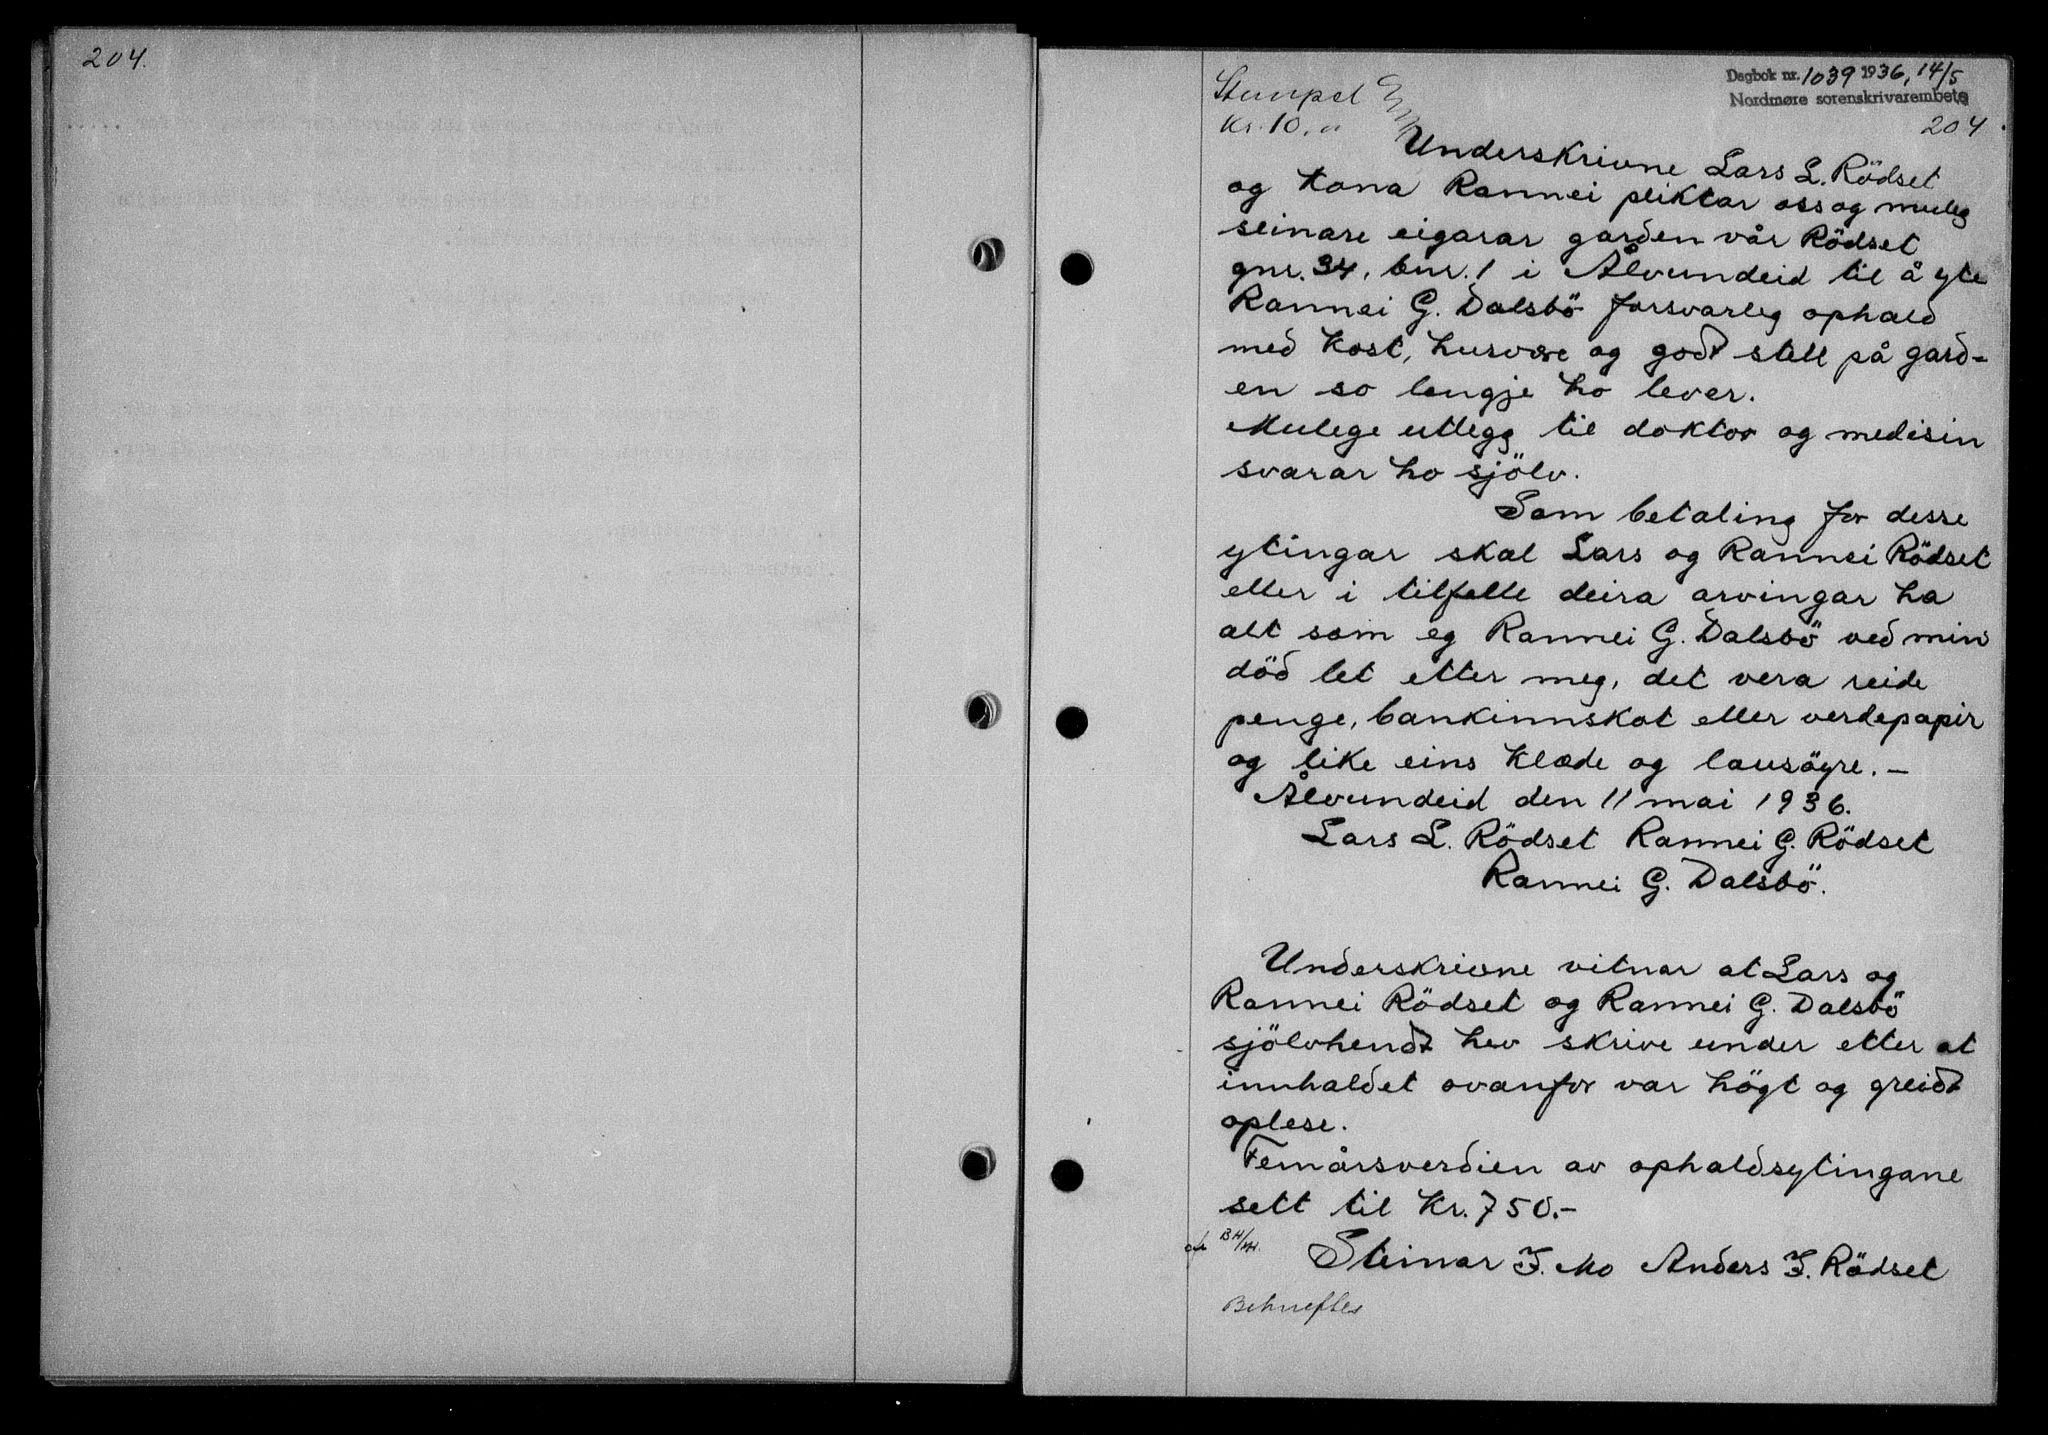 204.
Dagbok nr. 1039 1936, 14/5
Nordmøre sorenskrivarembete
204
Stempel
Kr. 10.
Underskrivne Lars L. Rödset
og kona Rannei pliktar oss og muleg
seinare eigarar garden vår Rödset
gnr. 34, bnr. 1 i Ålvundeid til å yte
Rannei G. Dalsbö forsvarleg ophald
med kost, husvære og godt stell på gard-
en so lengje ho lever.
Mulege utlegg til doktor og medisin
svarar ho sjölv.
Som betaling for desse
ytingar skal Lars og Rannei Rödset
eller i tilfelle deira arvingar ha
alt som eg Rannei G. Dalsbö ved min
död let etter meg, det vera reide
penge, bankinnskot eller verdepapir
og like eins klæde og lausöyre. -
Ålvundeid den 11 mai 1936.
Lars L. Rödset Rannei G. Rödset
Rannei G. Dalsbö.
Underskrivne vitnar at Lars og
Rannei Rödset og Rannei G. Dalsbö
sjölvhendt hev skrive under etter at
innhaldet ovanfor var högt og greidt
oplese.
Femårsverdien av ophaldsytingane
sett til Kr. 750.-
Steinar I. Mo Anders I. Rödset
Bekreftes